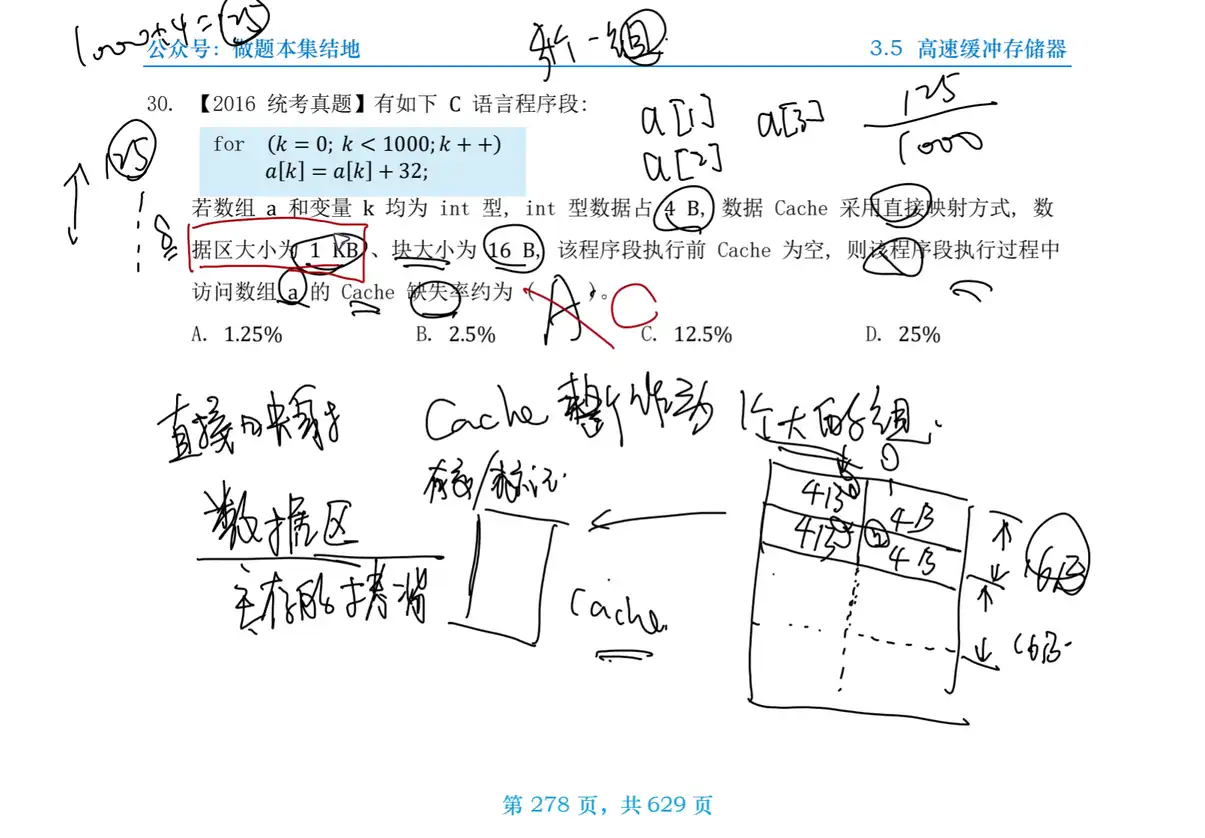 1000÷4=125
4个一组
公众号：做题本集结地
3.5 高速缓冲存储器
30. 【2016 统考真题】有如下 C 语言程序段:
for (k = 0; k < 1000; k + +)
a[k] = a[k] + 32;
a[1] a[3]
a[2]
125
1000
125
8
若数组 a 和变量 k 均为 int 型, int 型数据占 4 B, 数据 Cache 采用直接映射方式, 数
据区大小为 1 KB、块大小为 16 B, 该程序段执行前 Cache 为空, 则该程序段执行过程中
访问数组 a 的 Cache 缺失率约为（ ）。
A C
A. 1.25% B. 2.5% C. 12.5% D. 25%
直接映射 Cache 整个作为 1个大的组.
有效/标记.
数据区
主存的拷贝
Cache
4B 4B
4B 4B
16B
16B
第 278 页，共 629 页